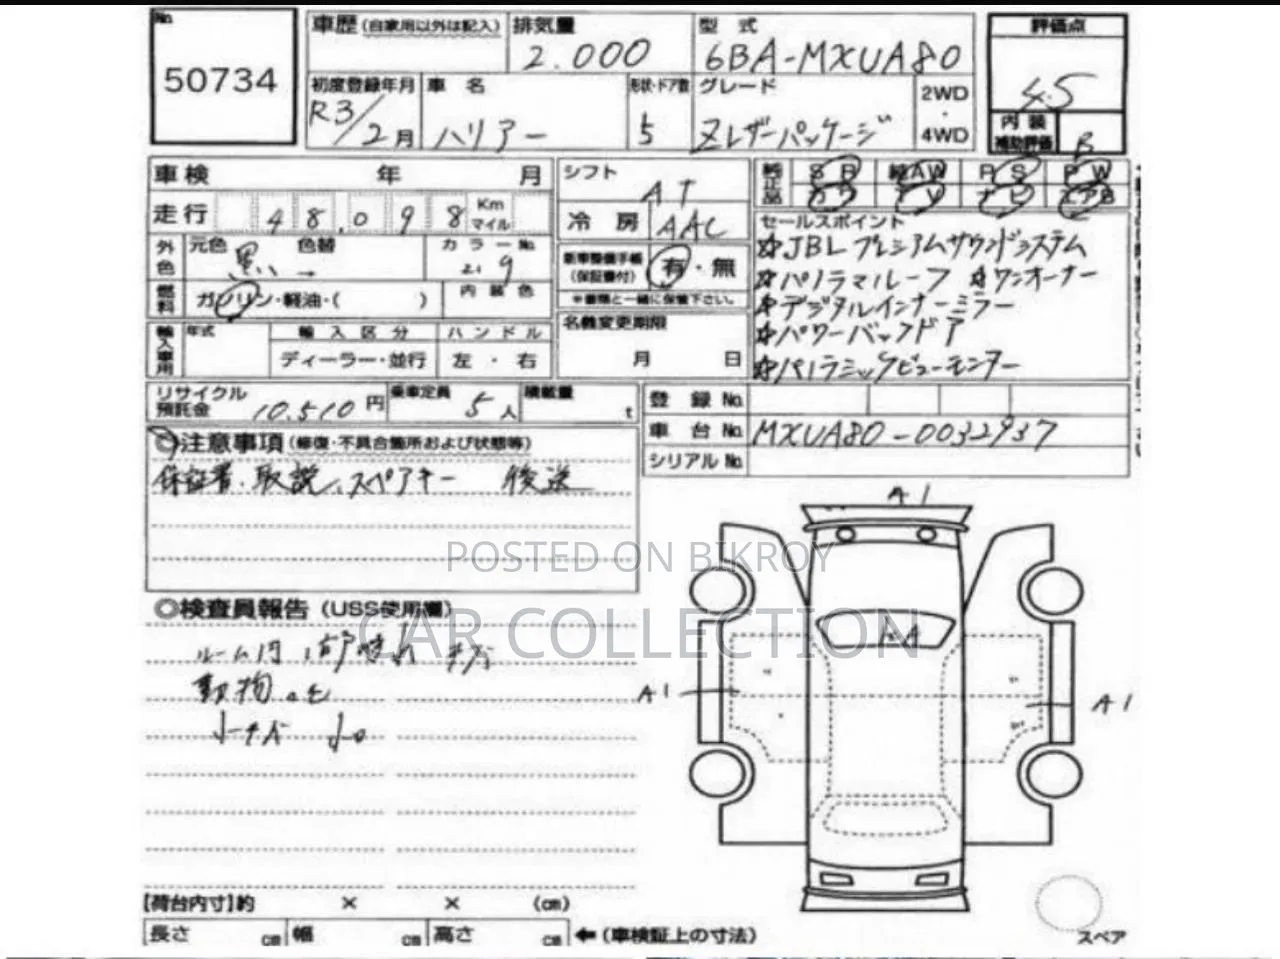 No.
50734
車歴(自家用以外は記入)
排気量
2.000
型 式
6BA-MXUA80
評価点
4.5
内装
補助評価
B
初度登録年月
R3/2月
車 名
ハリアー
形状・ドア数
5
グレード
Zレザーパッケージ
2WD
・
4WD
車検 年 月
走行 48,098 Km
マイル
シフト
AT
冷 房
AAC
純正品
SR
AW
PS
PW
カワ
TV
ナビ
エアB
外色
元色 黒 色替
カラーNo.
219
燃料
ガソリン・軽油・( )
内装色
新車整備手帳
(保証書付)
有・無
※書類と一緒に保管下さい。
セールスポイント
☆JBLプレミアムサウンドシステム
☆パノラマルーフ ☆ワンオーナー
☆デジタルインナーミラー
☆パワーバックドア
☆パノラミックビューモニター
輸入車用
年式
輸入区分
ハンドル
ディーラー・並行
左・右
名義変更期限
月 日
リサイクル
預託金 10.510円
乗車定員 5人
積載量 t
登 録 No.
車 台 No. MXUA80-0032937
シリアル No.
◎注意事項(修復・不具合箇所および状態等)
保証書・取説、スペアキー 後送
A1
POSTED ON BIKROY
CAR COLLECTION
◎検査員報告(USS使用欄)
ルーム内
キズ
A1
A1
【荷台内寸】約 × × (cm)
長さ cm 幅 cm 高さ cm ←(車検証上の寸法)
スペア